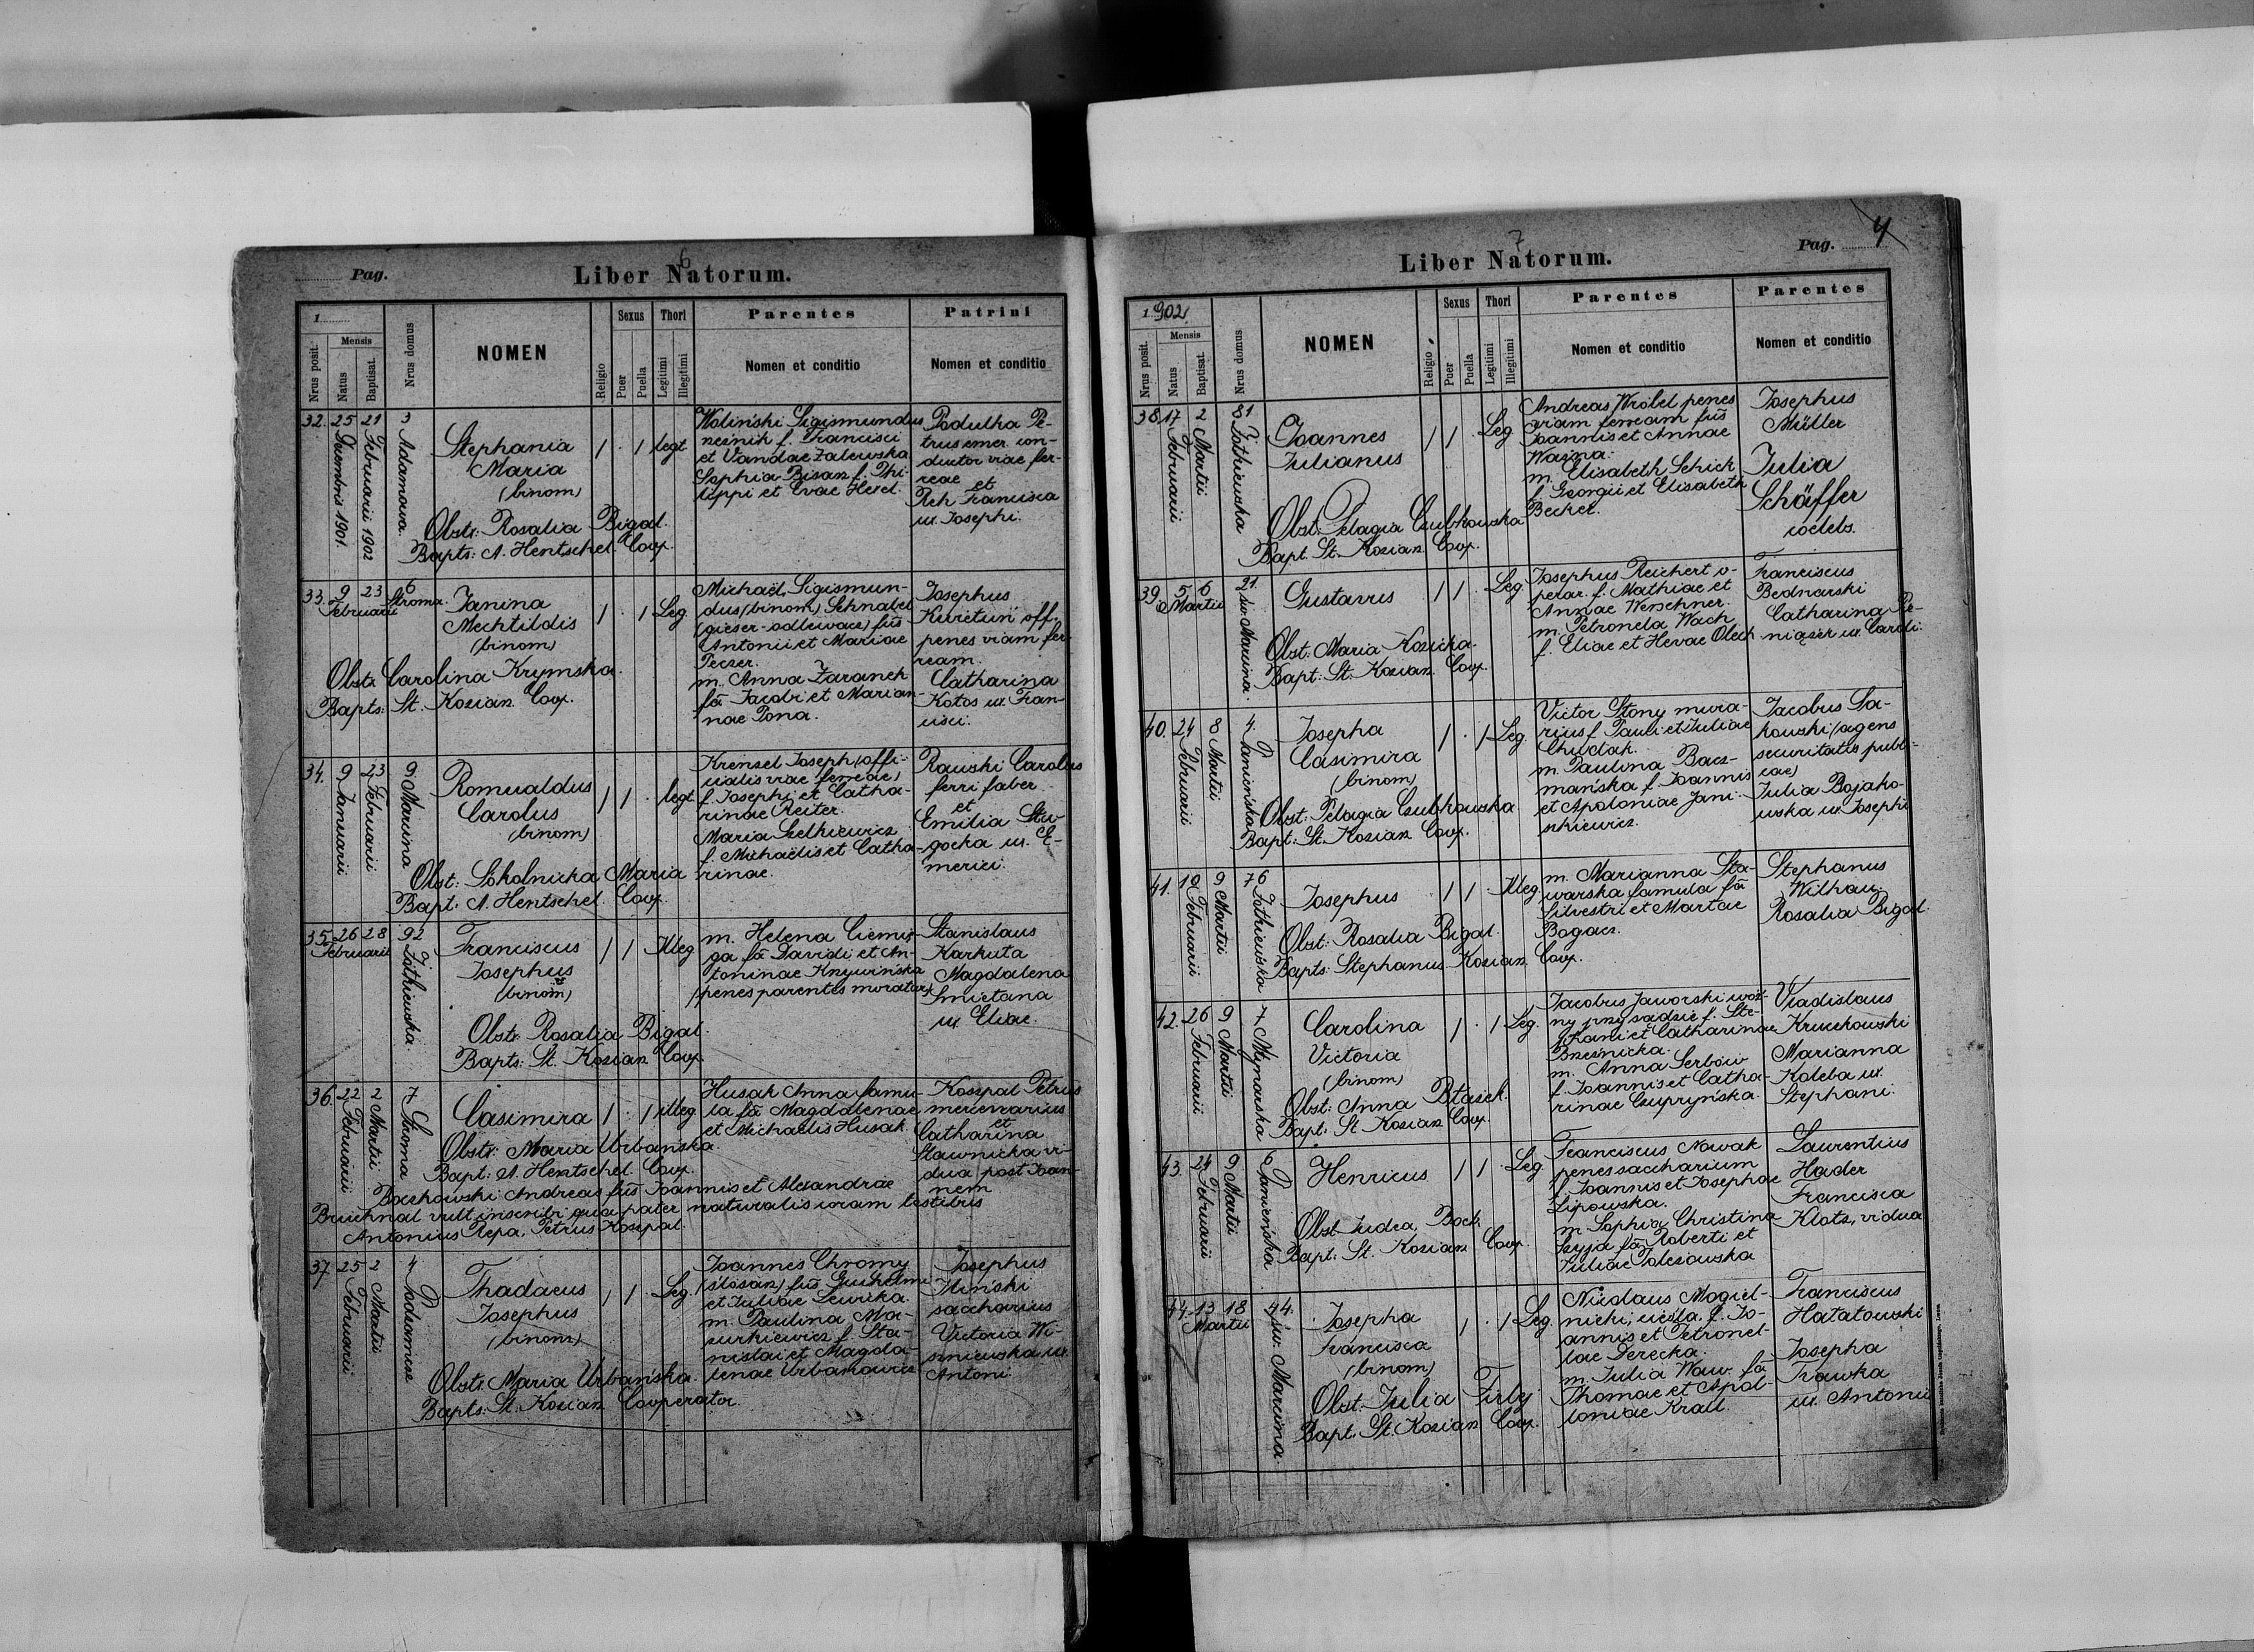 Pag.
6
Liber Natorum.
1
Nrus posit.
Mensis
Natus
Baptisat.
Nrus domus
NOMEN
Religio
Sexus
Puer
Puella
Thori
Legitimi
Illegitimi
Parentes
Nomen et conditio
Patrini
Nomen et conditio
32. 25 Decembris 1901. 21 Februarii 1902 3 Adamowa.
Stephania
Maria
(binom)
1 . 1 legt
Obstr: Rosalia Bigal.
Bapts: A. Hentschel. Coop.
Woliński Sigismundus
f. Francisci
et Vandae Zalewska
Sophia Bisan f. Phi-
lippi et Evae Herd.
Podulka Pe-
trus emer. con-
ductor viae fer-
reae et
Reh Francisca
ux. Josephi.
33. 9 23 Februarii 6 Stroma.
Janina
Mechtildis
(binom)
1 . 1 Leg
Obstr. Carolina Krymska.
Bapts: St. Kozian Coop.
Michaël Sigismun-
dus (binom) Schnabel
(gieser-odlewacz) fus
Antonii et Mariae
Peczer.
m. Anna Zaranek
fa Jacobi et Marian-
nae Pona.
Josephus
off.
penes viam fer-
ream.
Catharina
Kotos ux. Fran-
cisci.
34. 9 Januarii 23 Februarii 9 Marcina
Romualdus
Carolus
(binom)
1 1 . legt
Obst: Sokolnicka Maria
Bapt: A. Hentschel. Coop.
Krenzel Joseph (offi-
cialis viae ferreae)
f. Josephi et Catha-
rinae Reiter.
Maria Szelkiewicz
f. Michaëlis et Catha-
rinae.
Rawski Carolus
ferri faber
et
Emilia
ux. E-
merici.
35. 26 28 Februarii 92 Żółkiewska.
Franciscus
Josephus
(binom)
1 1 Illeg
Obstr. Rosalia Bigal.
Bapts: St. Kozian Coop.
m. Helena Ciemię-
ga fa Davidi et An-
toninae Knywińska
(penes parentes moratur)
Stanislaus
Karkuta
Magdalena
Smietana
ux. Eliae.
36. 22 Februarii 2 Martii 7 Stroma
Casimira
1 . 1 illeg
Obstr: Maria Urbańska.
Bapt: A. Hentschel. Coop.
Husak Anna famu-
la fa Magdalenae
et Michaelis Husak.
Koszpal Petrus
mercenarius
et
Catharina
Sławnicka vi-
dua post Joan-
nem
Baczkowski Andreas fus Joannis et Alexandrae
Bruchnal vult inscribi qua pater naturalis coram testibus
Antonius Repa, Petrus Koszpal.
37. 25 Februarii 2 Martii 4 Podzamcze
Thadaeus
Josephus
(binom)
1 1 . Leg.
Obstr. Maria Urbańska.
Bapts: St. Kozian Cooperator.
Joannes Chromy
(ślosarz) fus Guihelmi
et Juliae Lewicka.
m. Paulina Ma-
zurkiewicz f. Sta-
nislai et Magda-
lenae Urbanowicz
Josephus
Iliński
saccharius
Victoria Wi-
szniewska ux.
Antoni.
7
Liber Natorum.
Pag. 4
1902
Nrus posit.
Mensis
Natus
Baptisat.
Nrus domus
NOMEN
Religio
Sexus
Puer
Puella
Thori
Legitimi
Illegitimi
Parentes
Nomen et conditio
Parentes
Nomen et conditio
38. 17 Februarii 2 Martii 81 Żółkiewska
Joannes
Julianus
1 1 . Leg
Obst: Pelagia Czubkowska
Bapt. St. Kozian Coop.
Andreas Wróbel penes
viam ferream fus
Joannis et Annae
Wazna.
m. Elisabeth Schick
f. Georgii et Elisabeth
Beckel.
Josephus
Müller
Julia
Schäffer
coelebs.
39. 5 6 Martii 21. św. Marcina.
Gustavus
1 1 . Leg.
Obst: Maria Kozicka.
Bapt: St. Kozian Coop.
Josephus Reichert o-
perar. f. Mathiae et
Annae Werschner.
m. Petronela Wach
f. Eliae et Hevae Olech
Franciscus
Bednarski
Catharina Pe-
niązer ux. Caroli.
40. 24 Februarii 8 Martii 4. Panieńska
Josepha
Casimira
(binom)
1 . 1 Leg.
Obst: Pelagia Czubkowska
Bapt: St. Kozian Coop.
Victor Stony mura-
rius f. Pauli et Juliae
Chudak.
m. Paulina Bacz-
mańska f. Joannis
et Apoloniae Jani-
szkiewicz.
Jacobus Sa-
kowski (agens
securitatis publi-
cae)
Julia Bojako-
wska ux. Josephi
41. 19 Februarii 9 Martii 76 Żółkiewska
Josephus
1 1 . Illeg.
Obst: Rosalia Bigal.
Bapts: Stephanus Kozian Coop.
m. Marianna Sta-
warska famula fa
Silvestri et Martae
Bogacz.
Stephanus
Wilhau.
Rosalia Bigal.
42. 26 Februarii 9 Martii 7. Młynarska
Carolina
Victoria
(binom)
1 . 1 Leg.
Obst: Anna Ptasek.
Bapt: St. Kozian Coop.
Jacobus Jaworski woź-
ny przy sądzie f. Ste-
phani et Catharinae
Brzeznicka.
m. Anna Serbów
f. Joannis et Catha-
rinae Czupryńska.
Vladislaus
Kruczkowski
Marianna
Koleba ux.
Stephani.
43. 24 Februarii 9 Martii 6 Panieńska
Henricus
1 1 . Leg.
Obst. Judea, Bock.
Bapt: St. Kozian Coop.
Franciscus Nowak
penes saccharium
f. Joannis et Josephae
Lipowska.
m. Sophia Christina
fa Roberti et
Juliae
Laurentius
Hader
Francisca
Klotz, vidua
44. 13 18 Martii 44. św. Marcina.
Josepha
Francisca
(binom)
1 . 1 Leg.
Obst. Julia Firlej
Bapt: St. Kozian Coop.
Nicolaus Mogiel-
nicki, cieśla. f. Jo-
annis et Petronel-
lae Derecka.
m. Julia Waw. fa
Thomae et Apol-
loniae Krall.
Franciscus
Hatatowski
Josepha
Trawka
ux. Antonii